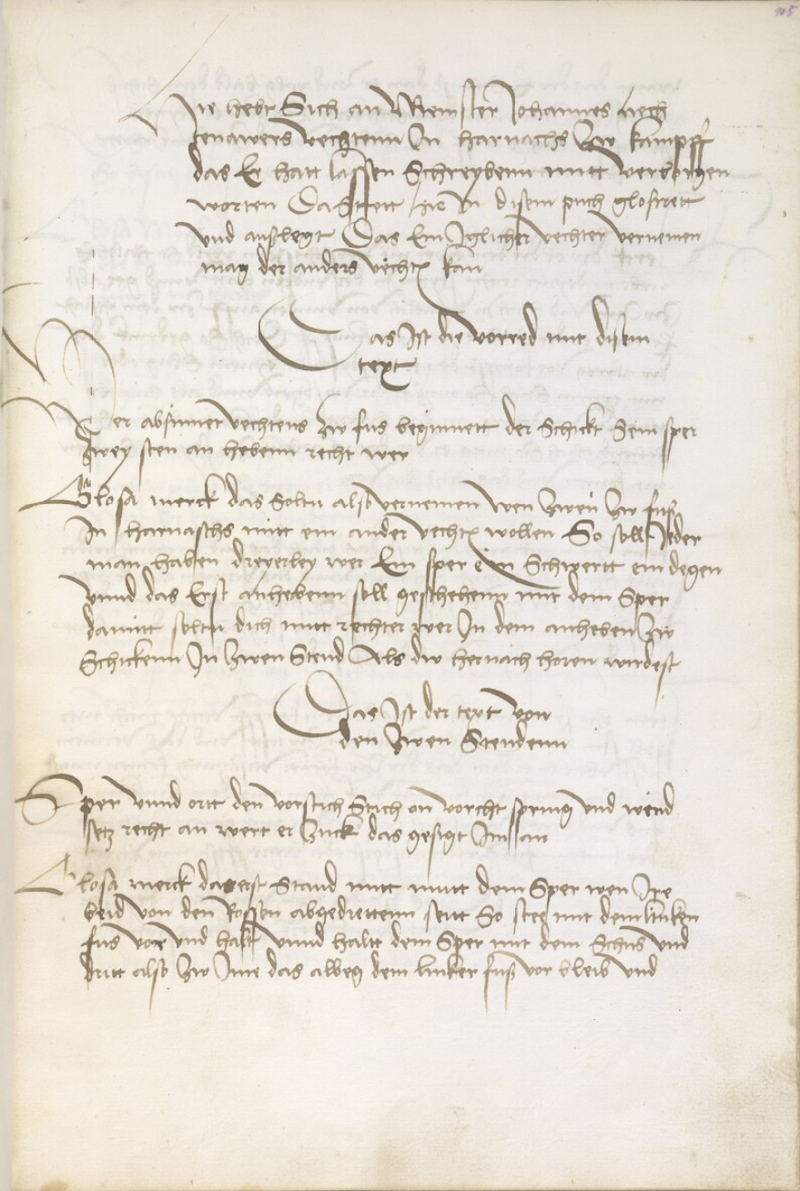 105
Hie hebt Sich an Meinster Johannes liech
tenawers vechtenn In harnaschs zw kampff
das Er hatt lassen Schreybenn mitt verborgen
worten Das stett hie In disem puch glosirett
vnd außlegt Das Ein Iglicher vechter vernemen
mag der anders vechtn kan
Das Ist die vorred mit disem
text
Wer absinnet vechtens zw fus beginnett der Schickt Sein sper
zwey sten an hebenn recht wer
Glosa merck das Soltu also vernemen wen zwen zw fuß
In harnaschs mitt ein ander vechtn wollen So soll Jeder
man haben dreyerley wer Ein sper ein Schwertt ein degen
vnnd das Erst anhebenn soll geschehenn mit dem Sper
damitt soltu dich mitt rechter wer In dem anheben zw
Schickenn In zwen Stend Als dw hernach horen wirdest
Das Ist der text von
den zwen Stendenn
Sper vnnd ortt den vorstich Stich an vorcht spring vnd wind
setz recht an wert er zuck das gesigt Im an
Glosa merck das erst Stand mitt mitt dem Sper wen Ire
beid von den Rossen abgedrettenn seitt So stee mit dem lincken
fus vor vnd halt vnnd haltt dem Sper mit dem Schus vnd
dritt also zw Ime das albeg dem lincker fuß vor bleib vnd